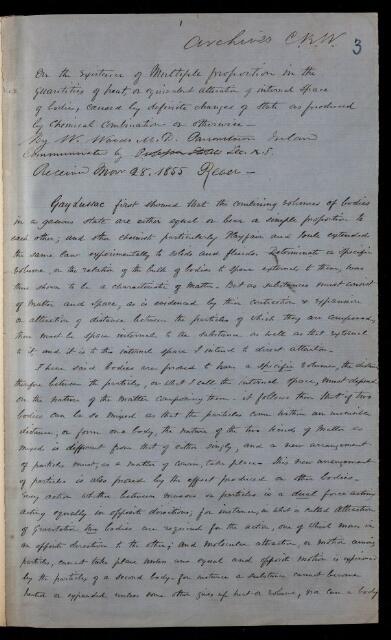 Archives C.R.W.
3
On the existence of Multiple proportion in the
quantities of heat, or equivalent alteration of internal space
of bodies, caused by definite changes of state as produced
by Chemical Combination or otherwise —
By Ths. Woods M.D. Parsonstown Ireland
Communicated by Professor Stokes Sec. R.S.
Received Nov 28. 1855 Read —
Gay Lussac first showed that the combining volumes of bodies
in a gaseous state are either equal or bear a simple proportion to
each other; and other chemists particularly Playfair and Joule extended
the same law experimentally to solids and fluids. Determinate or Specific
volume, or the relation of the bulk of bodies to space external to them, was
thus shown to be a characteristic of matter. But as substances must consist
of matter and space, as is evidenced by their contraction & expansion
or alteration of distance between the particles of which they are composed,
there must be space internal to the substance as well as that external
to it and it is to this internal space I intend to direct attention.
I have said bodies are proved to have a specific volume, the distance
therefore between the particles, or what I call the internal space, must depend
on the nature of the matter composing them. It follows then that if two
bodies can be so mixed as that the particles come within an invisible
distance, or form one body, the nature of the two kinds of matter so
mixed is different from that of either singly, and a new arrangement
of particles must, as a matter of course, take place. This new arrangement
of particles is also proved by the effect produced on other bodies.
Every action whether between masses or particles is a dual force acting
acting equally in opposite directions; for instance, in what is called Attraction
of Gravitation two bodies are required for the action, one of which moves in
an opposite direction to the other; and molecular attraction, or motion among
particles, cannot take place unless an equal and opposite motion is experienced
by the particles of a second body. For instance a substance cannot become
heated or expanded unless some other gives up heat or volume, nor can a body